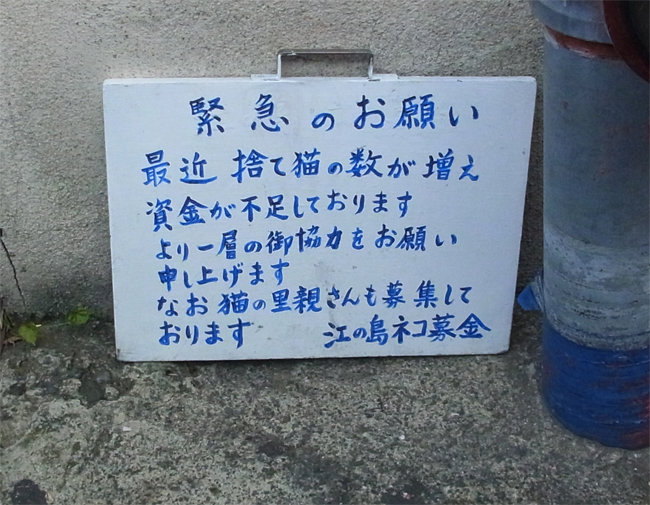 緊急のお願い
最近 捨て猫の数が増え
資金が不足しております
より一層の御協力をお願い
申し上げます
なお猫の里親さんも募集して
おります 江の島ネコ募金